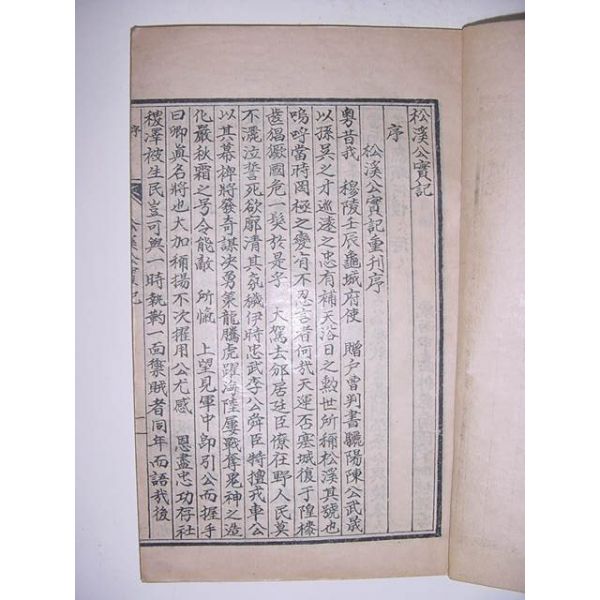 松溪公實記
序
松溪公實記重刊序
粤昔我 穆陵壬辰龜城府使 贈戶曹判書驪陽陳公武晟
以孫吳之才巡遠之忠有補天浴日之勲世所稱松溪其號也
嗚呼當時罔極之變有不忍言者何哉天運否塞城復于隍漆
齒猖獗國危一髮於是乎 大駕去邠居廷臣僚在野人民莫
不灑泣誓死欲廓清其氛穢伊時忠武李公舜臣特擅我車公
以其幕裨將發奇謀決勇策龍騰虎躍海陸屢戰奪鬼神之造
化嚴秋霜之号令能敵 所愾 上望見軍中卽引公而握手
曰卿眞名將也大加稱揚不次擢用公尤感 恩盡忠功存社
稷澤被生民豈可與一時執勒一面禦賊者同年而語哉後
松溪公實記
序
一